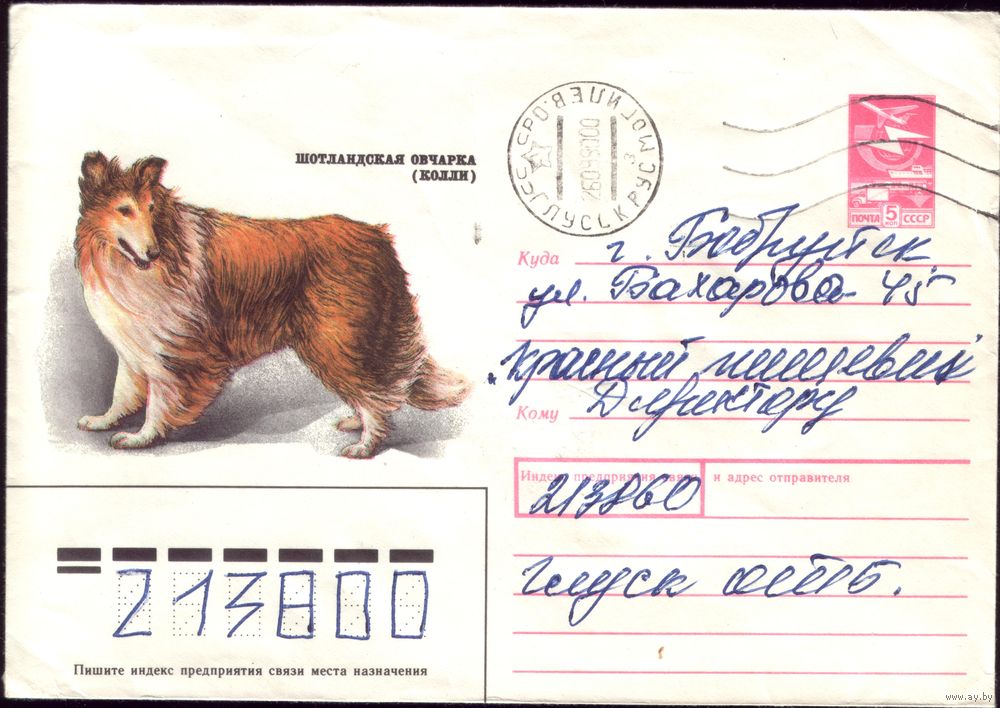 ШОТЛАНДСКАЯ ОВЧАРКА
(КОЛЛИ)
ПОЧТА 5 КОП СССР
Куда г. Бобруйск
ул. Бахарова 45
красный пищевик
Кому Директору
Индекс предприятия связи и адрес отправителя
213860
Глуск
213800
Пишите индекс предприятия связи места назначения
www.ay.by